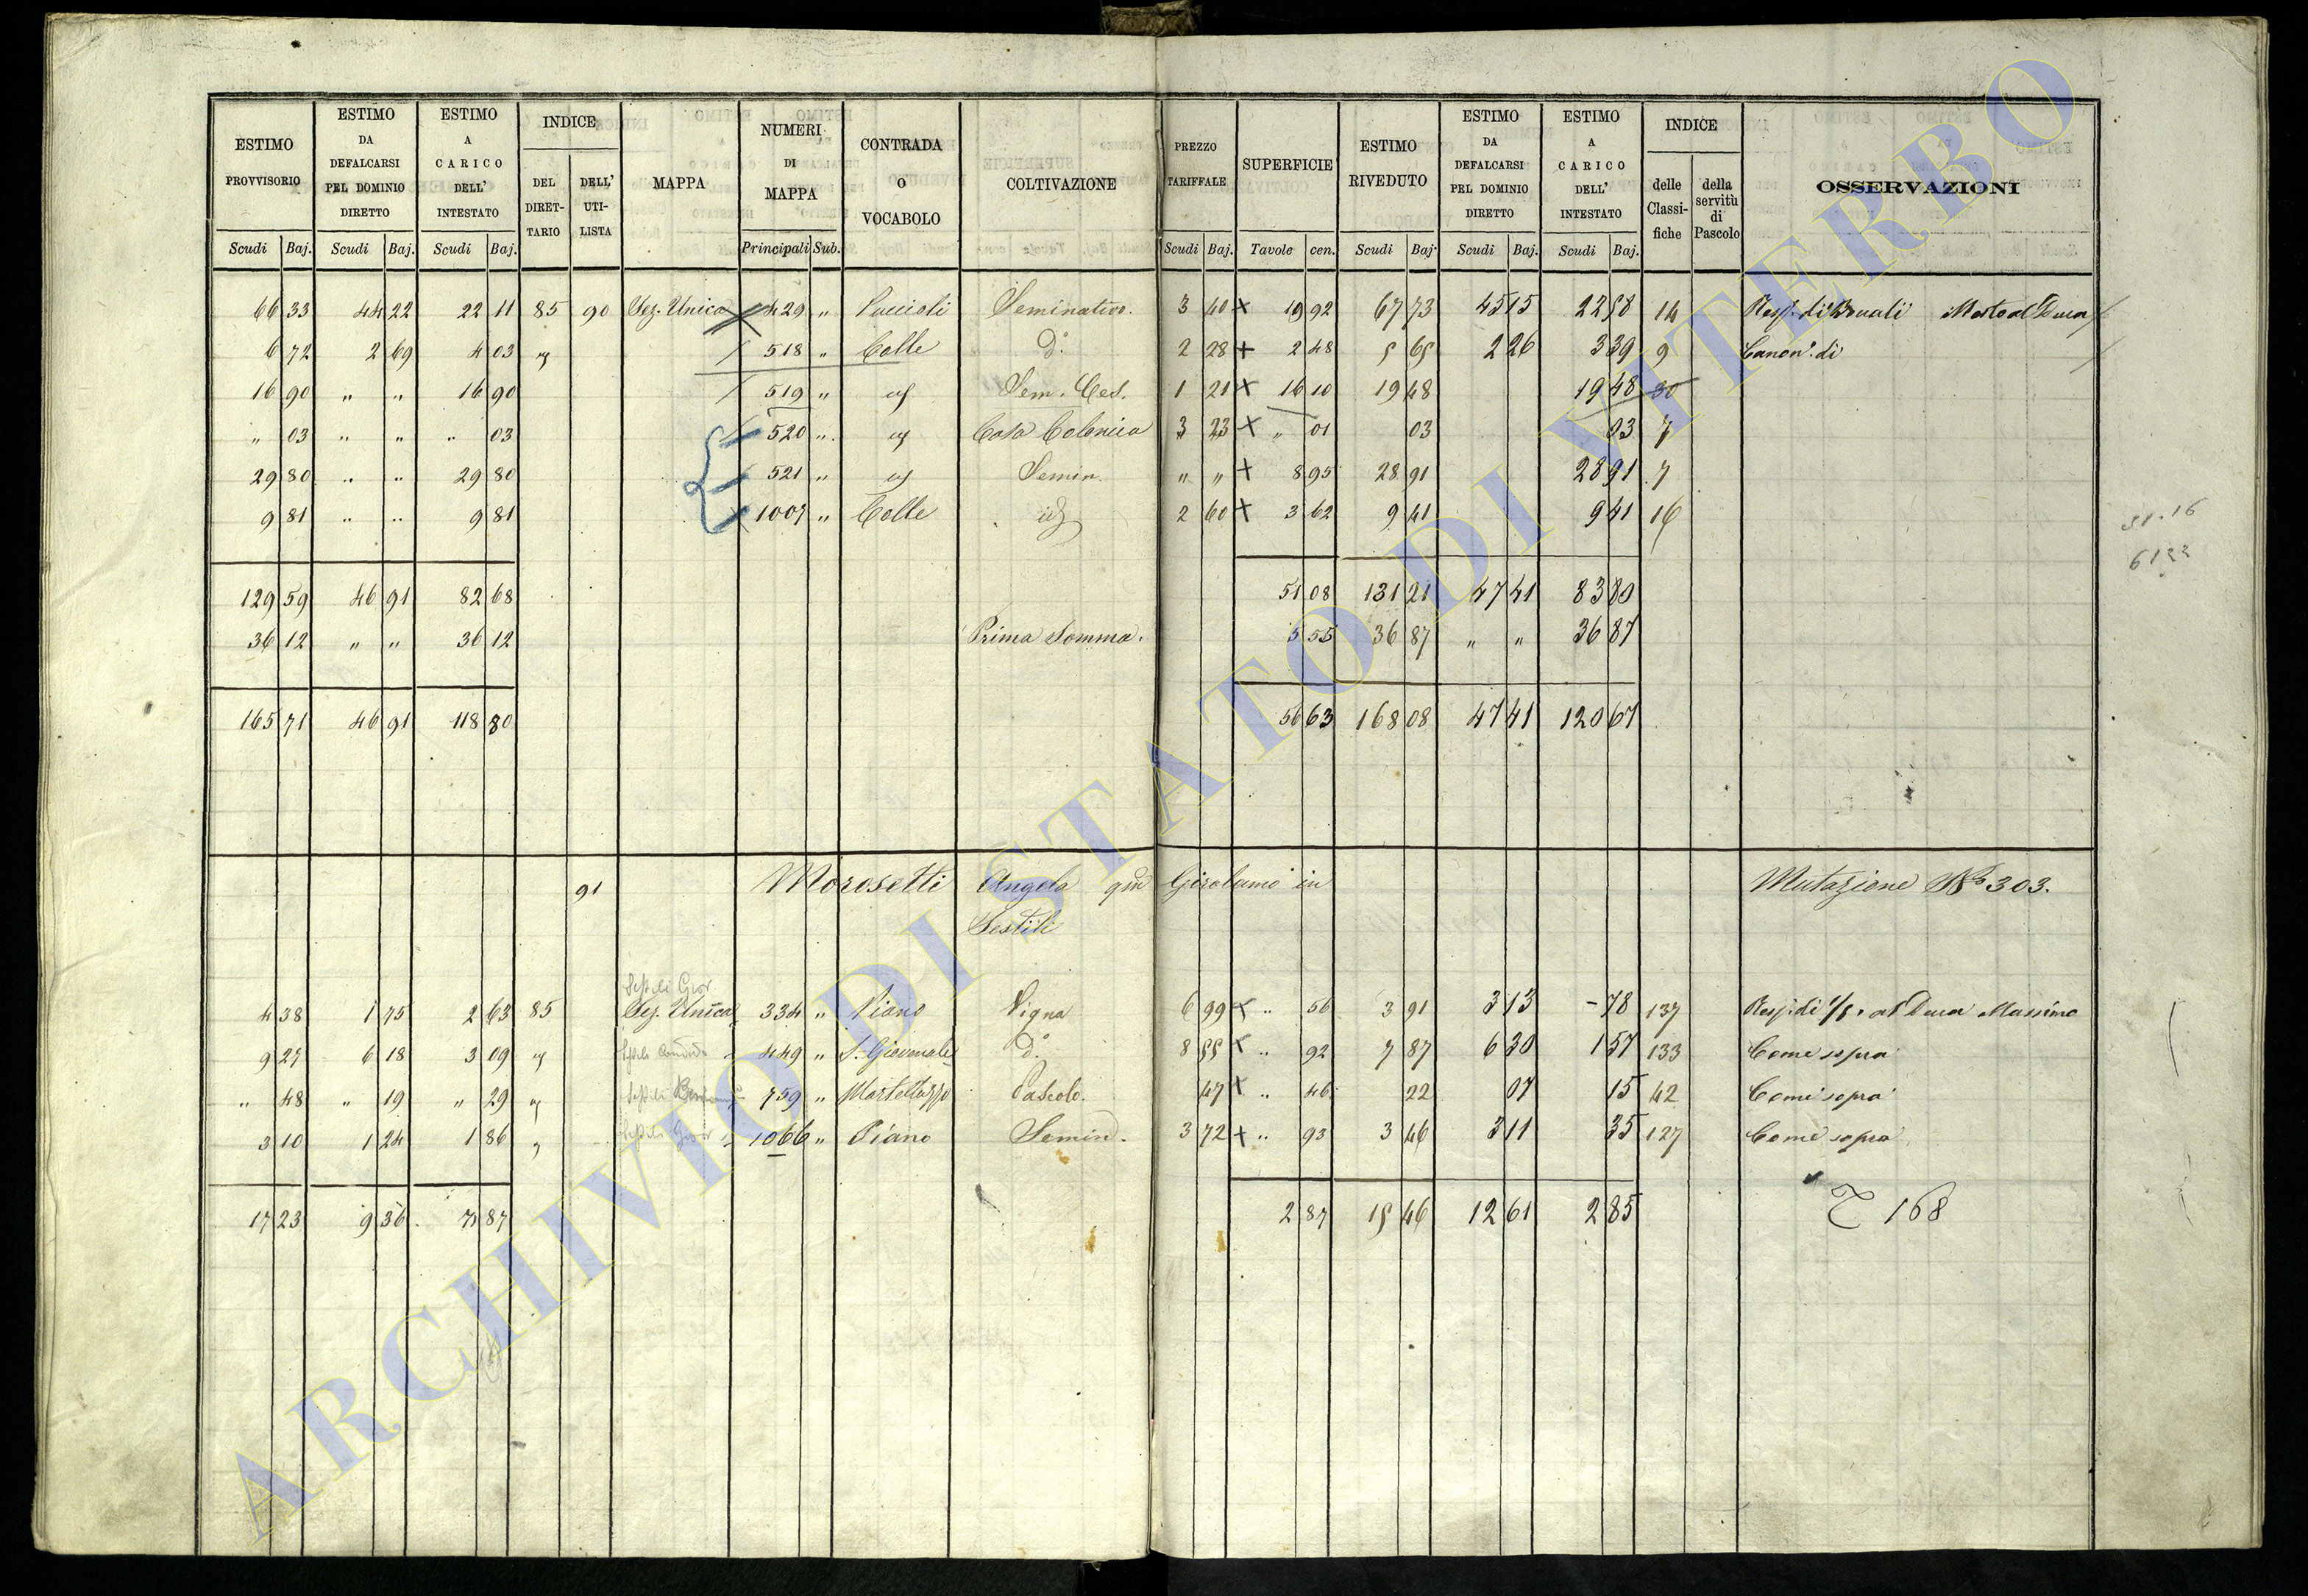 ESTIMO PROVVISORIO | ESTIMO DA DEFALCARSI PEL DOMINIO DIRETTO | ESTIMO A CARICO DELL' INTESTATO | INDICE DEL DIRET- TARIO | DELL' UTI- LISTA | MAPPA | NUMERI DI MAPPA | CONTRADA O VOCABOLO | COLTIVAZIONE | PREZZO TARIFFALE | SUPERFICIE | ESTIMO RIVEDUTO | ESTIMO DA DEFALCARSI PEL DOMINIO DIRETTO | ESTIMO A CARICO DELL' INTESTATO | INDICE delle Classi- fiche | della servitù di Pascolo | OSSERVAZIONI
Scudi Baj. Scudi Baj. Scudi Baj. Principali Sub. Scudi Baj. Tavole cen. Scudi Baj. Scudi Baj. Scudi Baj.
66 33 44 22 22 11 85 90 Sez. Unica 429 " Puccioli Seminativo. 3 40 + 19 92 67 73 45 15 22 58 14 Resp. di al Duca
6 72 2 69 4 03 518 " Colle do. 2 28 + 2 48 5 65 2 26 3 39 9 Canone di
16 90 " " 16 90 519 " Sem. Ces. 1 21 + 16 10 19 48 19 48 30
" 03 " " " 03 520 " Casa Colonica 3 23 + " 01 03 03 7
29 80 " " 29 80 521 " Semin. " " + 8 95 28 91 28 91 7
9 81 " " 9 81 1007 " Colle id 2 60 + 3 62 9 41 9 41 16
129 59 46 91 82 68 51 08 131 21 47 41 83 80
36 12 " " 36 12 Prima Somma. 5 55 36 87 " " 36 87
165 71 46 91 118 80 56 63 168 08 47 41 120 67
91 Morosetti Angela qm Girolamo in Mutazione No 303.
Sestili
Sestili Gior
4 38 1 75 2 63 85 Sez. Unica 334 " Piano Vigna 6 99 + " 56 3 91 3 13 - 78 137 Resp. di 1/5 al Duca Massimo
9 27 6 18 3 09 449 " S. Giovenale do. 8 55 + " 92 7 87 6 30 1 57 133 Come sopra
" 48 " 19 " 29 759 " Martelluzzo Pascolo. 47 + " 46 22 07 15 42 Come sopra
3 10 1 24 1 86 " 1066 " Piano Semin. 3 72 + " 93 3 46 3 11 35 127 Come sopra
17 23 9 36 7 87 2 87 15 46 12 61 2 85 168
ARCHIVIO DI STATO DI VITERBO